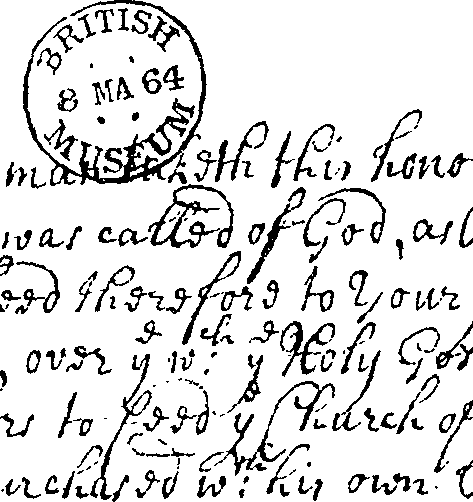 BRITISH
8 MA 64
MUSEUM
man taketh this hono
was called of God, as
eed therefore to Your
, over yᵉ wᶜʰ: yᵉ Holy Gos
rs to feed yᵉ Church of
urchased wᵗʰ: his own